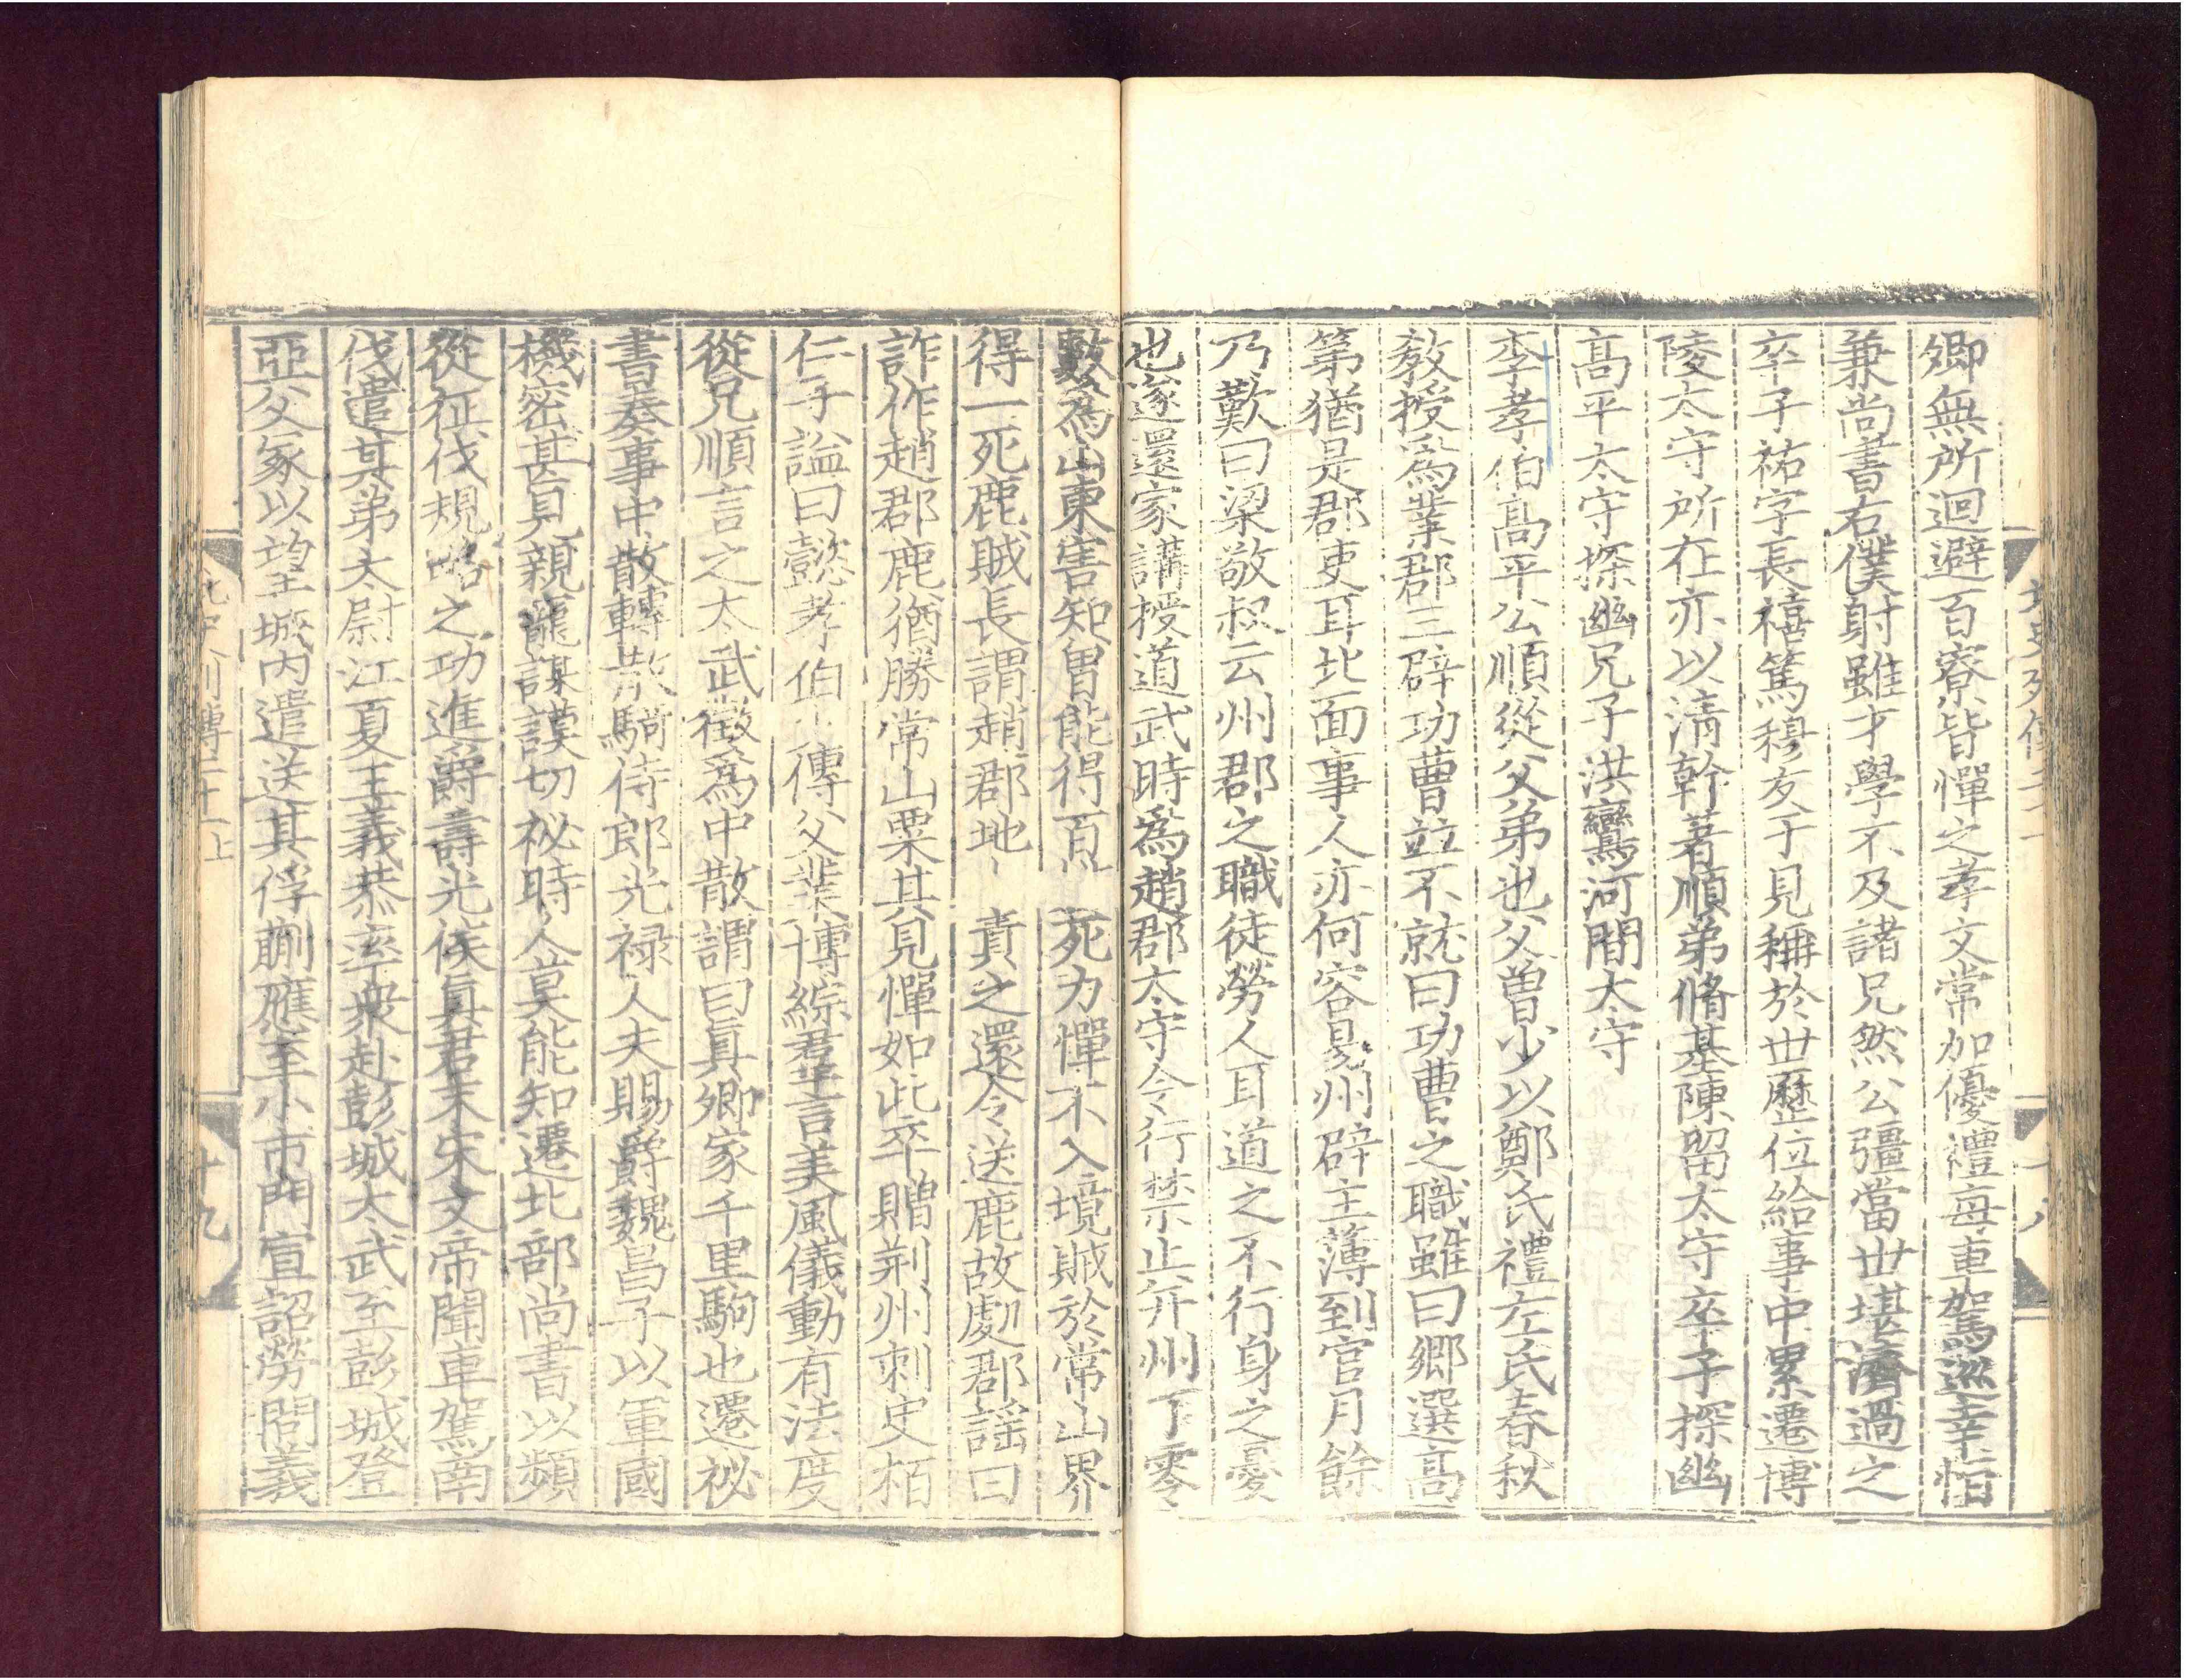 卿無所迴避百寮皆憚之孝文常加優禮每車駕巡幸恒
兼尚書右僕射雖才學不及諸兄然公彊當世堪濟過之
卒子祐字長禧篤穆友于見稱於世歷位給事中累遷博
陵太守所在亦以淸幹著順弟脩基陳留太守卒子探幽
高平太守探幽兄子洪鸞河間太守
李孝伯高平公順從父弟也父曾少以鄭氏禮左氏春秋
敎授爲業郡三辟功曹並不就曰功曹之職雖曰鄉選高
第猶是郡吏耳北面事人亦何容易州辟主薄到官月餘
乃歎曰梁敬叔云州郡之職徒勞人耳道之不行身之憂
也遂還家講授道武時爲趙郡太守令行禁止并州丁零
數爲山東害知曾能得百 死力憚不入境賊於常山界
得一死鹿賊長謂趙郡地 責之還令送鹿故處郡謡曰
詐作趙郡鹿猶勝常山粟其見憚如此卒贈荆州刺史栢
仁子謚曰懿孝伯少傳父業博綜羣言美風儀動有法度
從兄順言之太武徵爲中散謂曰眞卿家千里駒也遷祕
書奏事中散轉散騎侍郎光禄大夫賜爵魏昌子以軍國
機密甚見親寵謀謨切祕時人莫能知遷北部尚書以頻
從征伐規略之功進爵壽光侯眞君末宋文帝聞車駕南
伐遣其弟太尉江夏王義恭率衆赴彭城太武至彭城登
亞父冢以望城內遣送其俘蒯應至小市門宣詔勞問義
北史列傳二十一上
十九